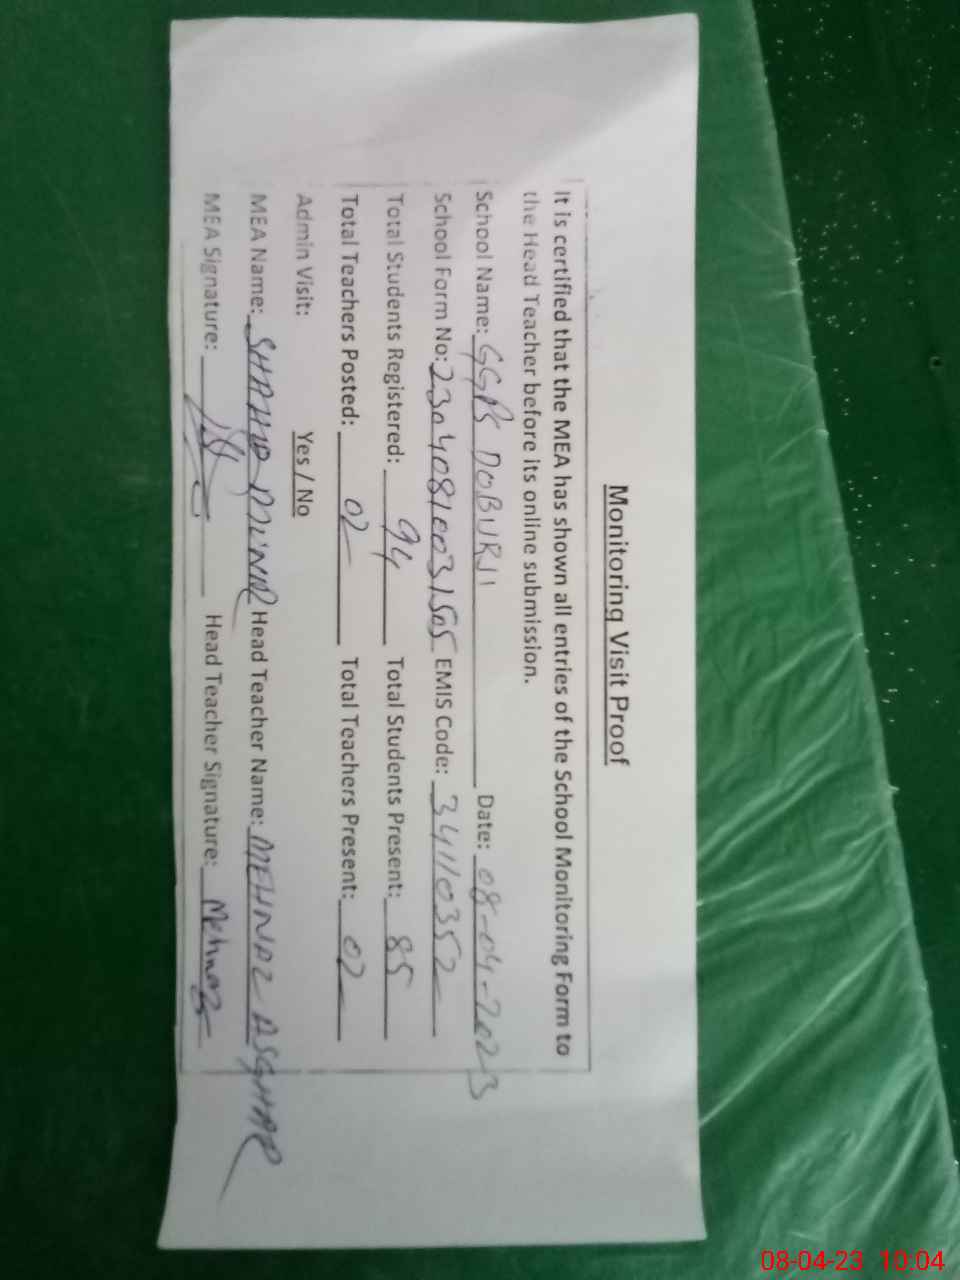 Monitoring Visit Proof
It is certified that the MEA has shown all entries of the School Monitoring Form to
the Head Teacher before its online submission.
School Name: GGPS DOBURJI Date: 08-04-2023
School Form No: 23040810031505 EMIS Code: 34110352
Total Students Registered: 94 Total Students Present: 85
Total Teachers Posted: 02 Total Teachers Present: 02
Admin Visit: Yes / No
MEA Name: SHAHID Head Teacher Name: MEHNAZ ASGHAR
MEA Signature: Head Teacher Signature: Mehnaz
08-04-23 10:04